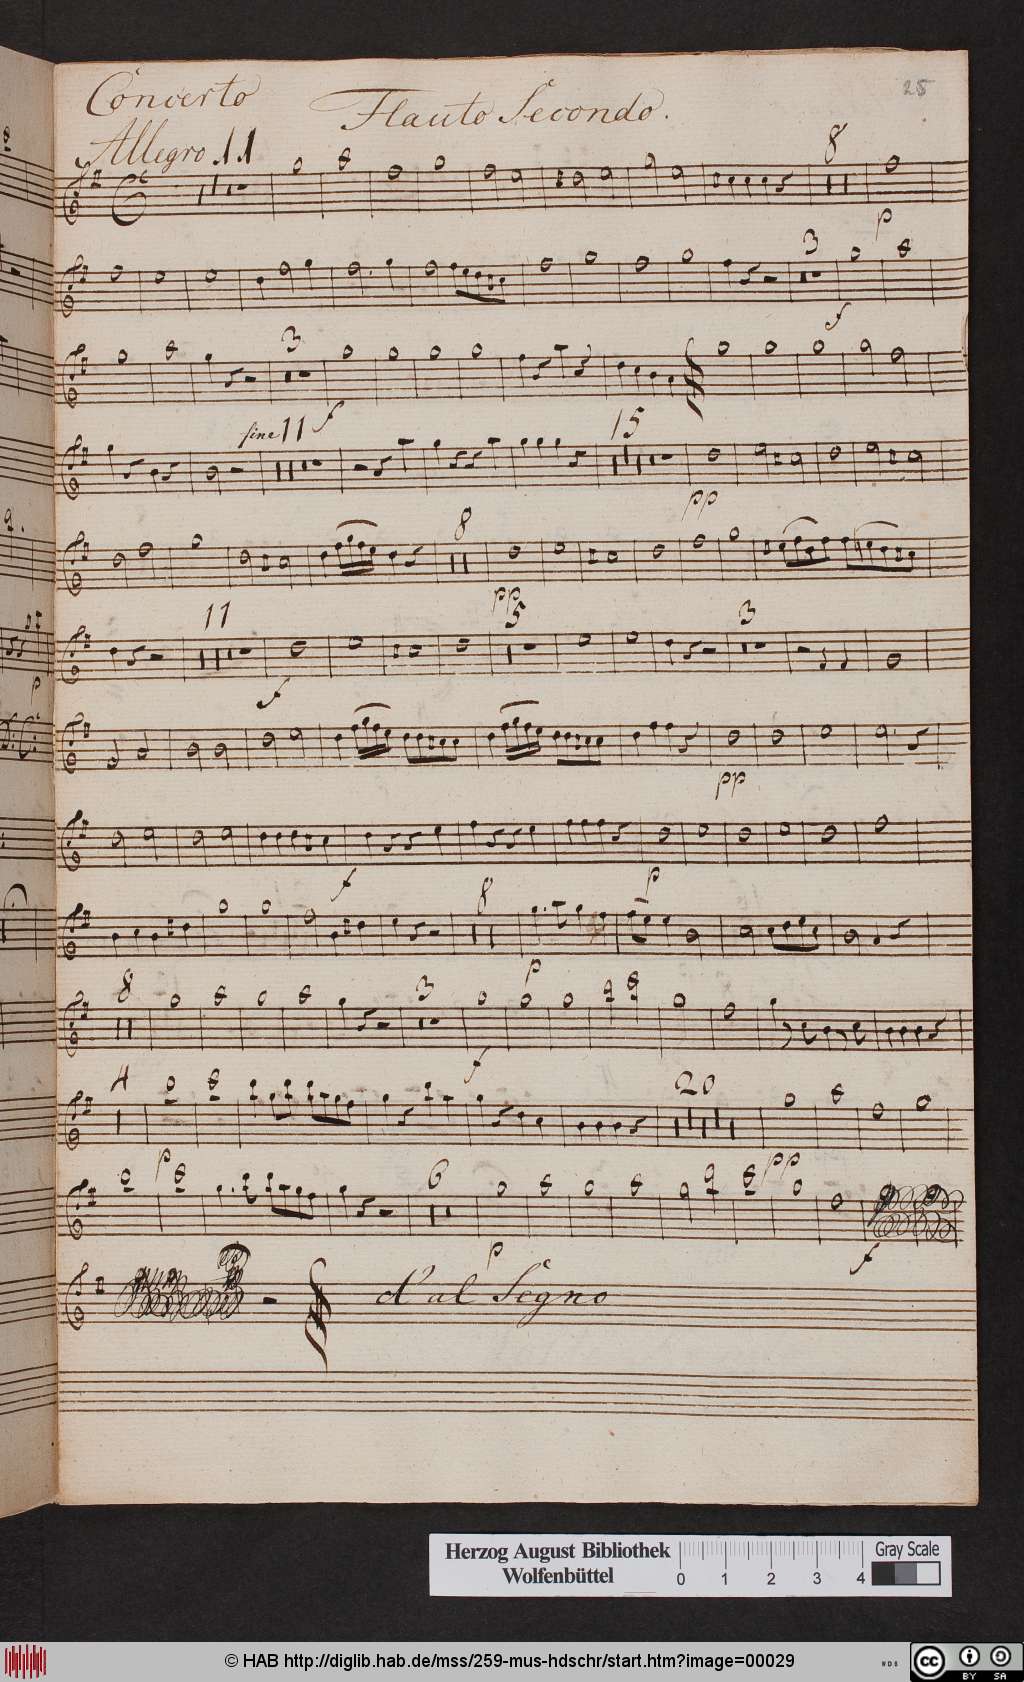 Concerto Flauto Secondo. 25
Allegro 11
8
p
3
f
3
f
fine 11
15
pp
8
pp
11
5
3
f
pp
f
p
8
p
8
3
f
4
20
p
pp
6
p
f
d'al Segno
Herzog August Bibliothek
Wolfenbüttel
0 1 2 3 4
Gray Scale
© HAB http://diglib.hab.de/mss/259-mus-hdschr/start.htm?image=00029
WDB
cc BY SA